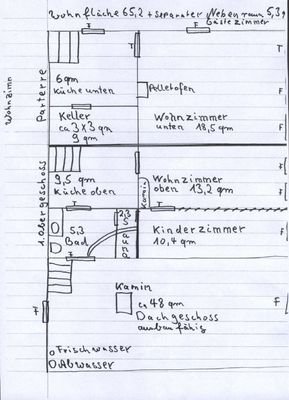 Wohnfläche 65,2 + separater Nebenraum 5,3 q
Gästezimmer
F
T
T
Wohnzimm
Parterre
6 qm
Küche unten
Pelletofen
F
T
Keller
ca 3 x 3 qm
9
Wohnzimmer
unten 18,5 qm
F
1. Obergeschoss
9,5 qm
Küche oben
Kamin
Wohnzimmer
oben 13,2 qm
F
T
T
5,3
Bad
2,3
Kinderzimmer
10,4 qm
F
T
F
Kamin
ca 48 qm
Dachgeschoss
ausbaufähig
F
o Frischwasser
O Abwasser